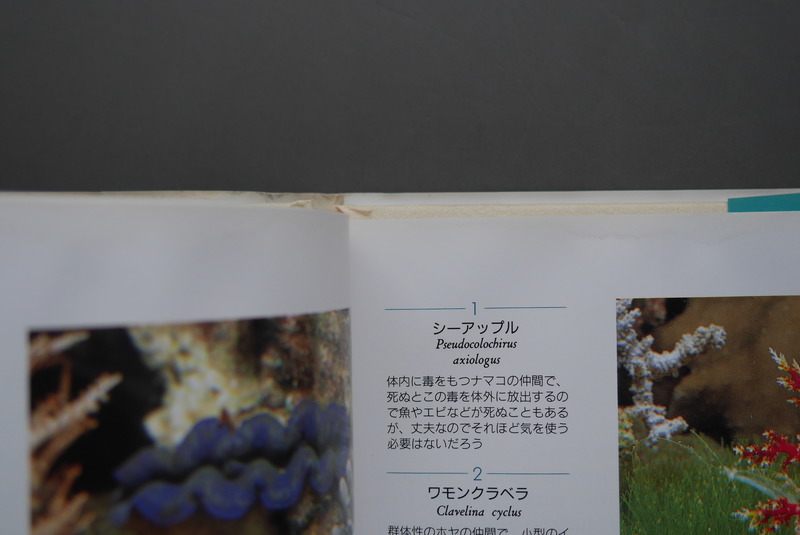 1
シーアップル
Pseudocolochirus
axiologus
体内に毒をもつナマコの仲間で、
死ぬとこの毒を体外に放出するの
で魚やエビなどが死ぬこともある
が、丈夫なのでそれほど気を使う
必要はないだろう
2
ワモンクラベラ
Clavelina cyclus
群体性のホヤの仲間で、小型のイ